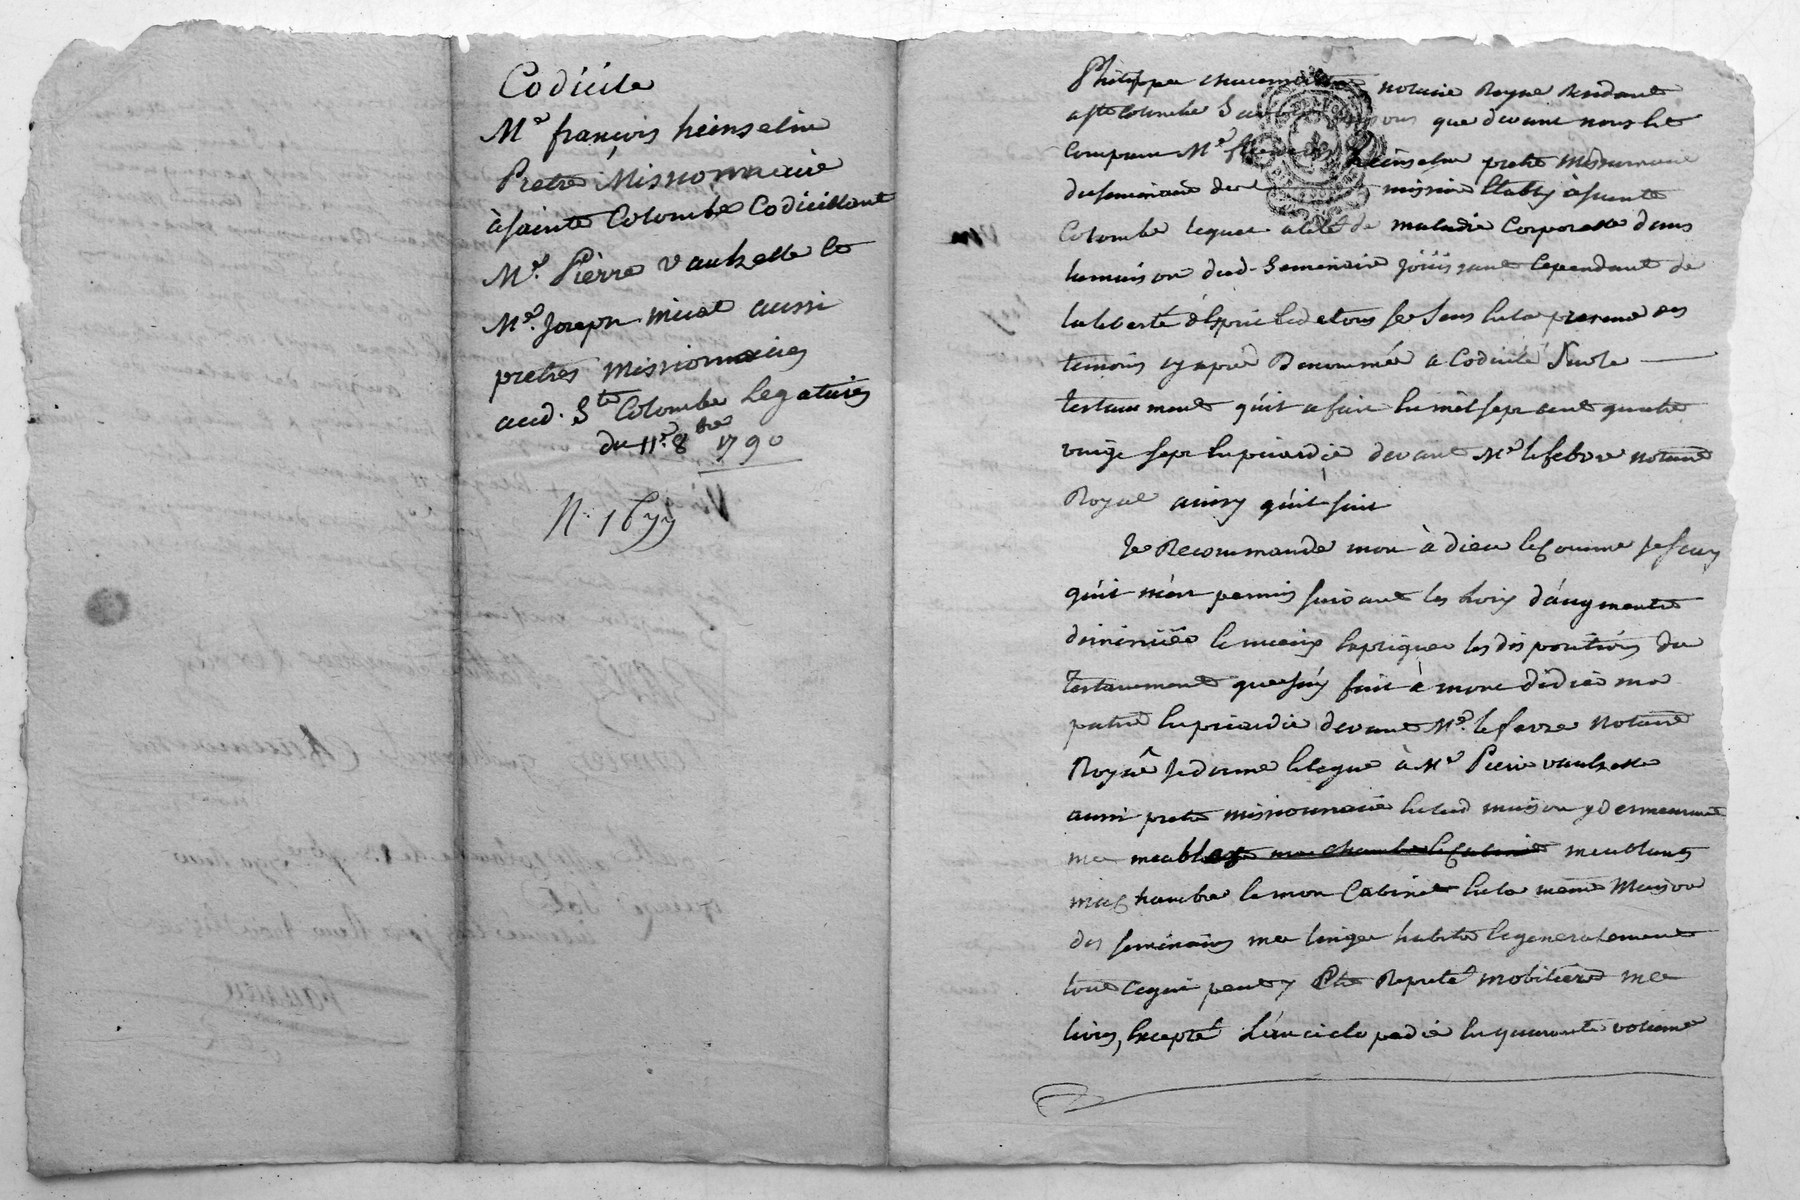 Codicile
Mr françois heinselin
Pretre Missionnaire
à sainte Colombe Codicillant
Mr. Pièrre vauhelle et
Mr. Joseph
aussi
pretres missionnaires
aud. Ste Colombe Legataires
du 11e. 8bre 1790
N. 1677
Philippe notaire Royal Residant
a ste Colombe que devant nous est
Comparu Mr heinselin pretre missionnaire
du seminaire de mission Etably à sainte
Colombe lequel de maladie Corporelle dans
la maison dud. Seminaire jöüissant Cependant de
la liberté d'Esprit et de tous ses Sens En la presence des
temoins cy apres Denommée a Codicilé Sur le
testament quil a fait En mil sept cent quatre
vingt sept En picardie devant Mr lefebvre notaire
Royal ainsy quil suit
Je Recommande mon à dieu Et comme je scay
quil mest permis suivant les Loix d'augmenter
diminüer le mieux Expliquer les dispositions du
testament que jay fait à ma
patrie En picardie devant Mr. lefevre Notaire
Royal Je donne Et legue à Mr Pierre vauhelle
aussi pretre missionnaire En lad maison y demeurant
mes meubles ma chambre Et Cabinet meublants
ma Chambre Et mon Cabinet En la meme Maison
des seminaires mes linges habits Et generalement
tout Cequi peut y Etre Reputé mobilière mes
livres, Excepté L'enciclopedie En quarante volume